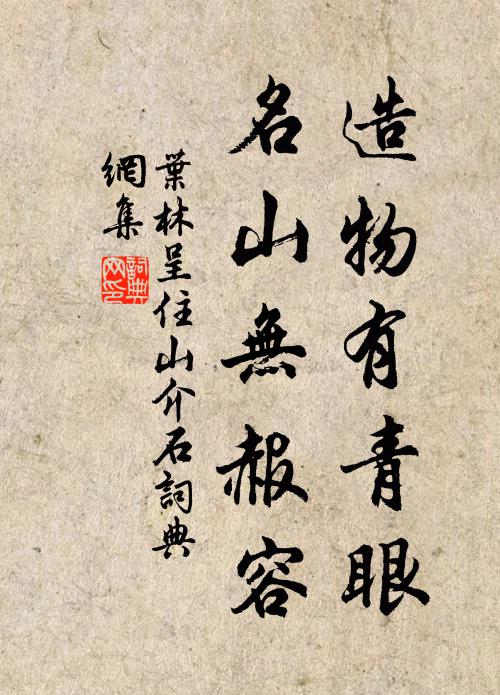 造物有青眼
名山無赧容
葉林呈住山介石詞典
網集
詞典
网印